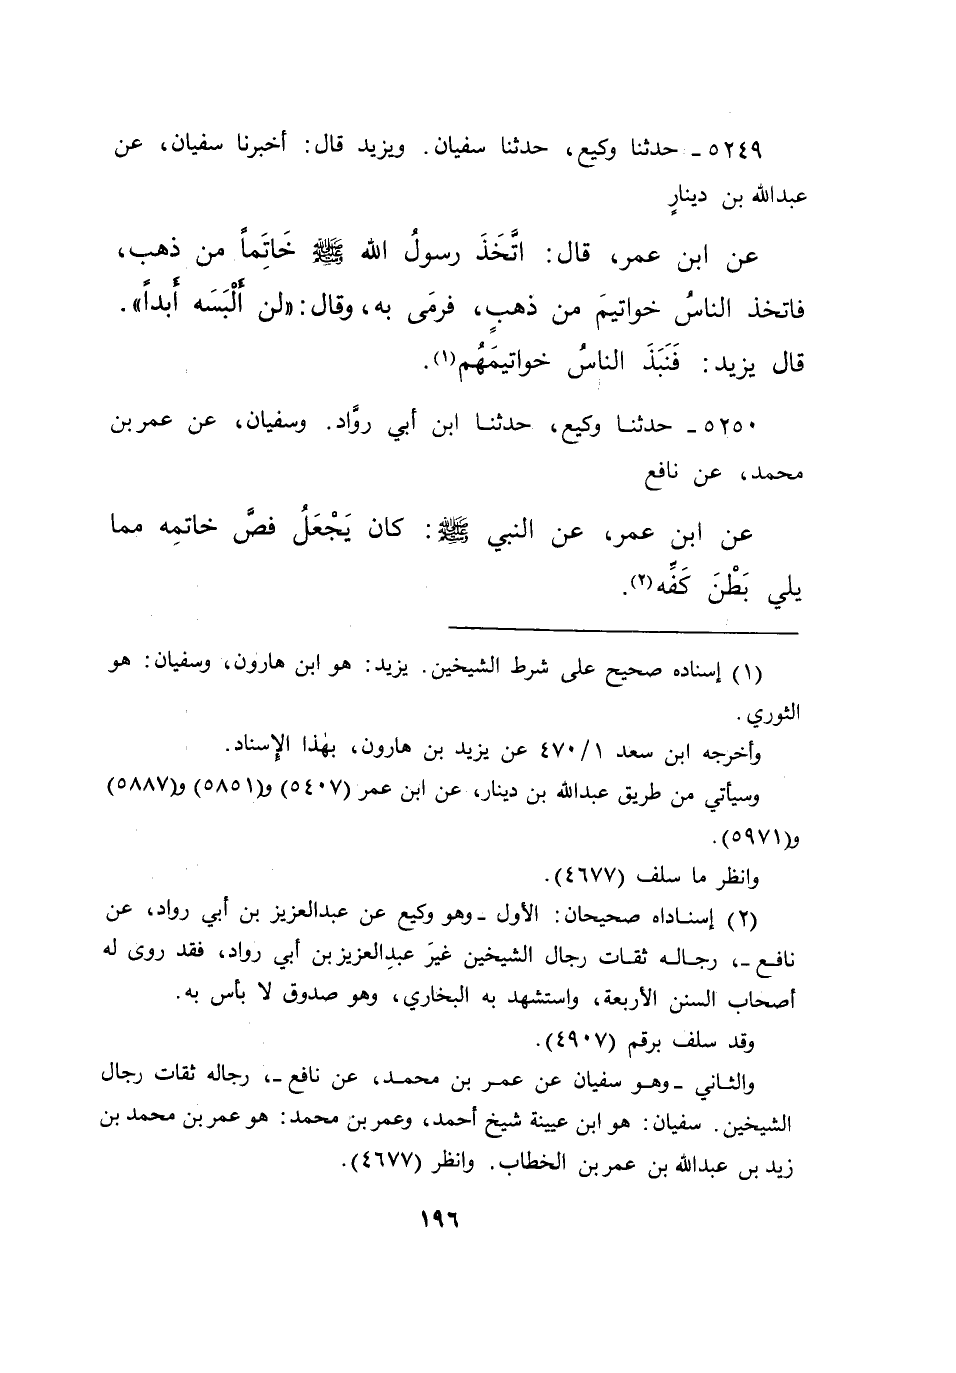 ٥٢٤٩ـ حدثنا وكيع، حدثنا سفيان. ويزيد قال: أخبرنا سفيان، عن
عبدالله بن دينارٍ
عن ابن عمر، قال: اتَّخَذَ رسولُ الله ﷺ خَاتَماً من ذهب،
فاتخذ الناسُ خواتيمَ من ذهبٍ، فرمَى به، وقال: «لن أَلْبَسَه أَبداً».
قال يزيد: فَنَبَذَ الناسُ خواتيمَهُم(١).
٥٢٥٠ـ حدثنا وكيع، حدثنا ابن أبي روَّاد. وسفيان، عن عمر بن
محمد، عن نافع
عن ابن عمر، عن النبي ﷺ: كان يَجْعَلُ فصَّ خاتمِه مما
يلي بَطْنَ كَفِّه(٢).
(١) إسناده صحيح على شرط الشيخين. يزيد: هو ابن هارون، وسفيان: هو
الثوري.
وأخرجه ابن سعد ٤٧٠/١ عن يزيد بن هارون، بهٰذا الإسناد.
وسيأتي من طريق عبدالله بن دينار، عن ابن عمر (٥٤٠٧) و(٥٨٥١) و(٥٨٨٧)
و(٥٩٧١).
وانظر ما سلف (٤٦٧٧).
(٢) إسناداه صحيحان: الأول ـ وهو وكيع عن عبدالعزيز بن أبي رواد، عن
نافع ـ، رجاله ثقات رجال الشيخين غيرَ عبدِالعزيز بن أبي رواد، فقد روى له
أصحاب السنن الأربعة، واستشهد به البخاري، وهو صدوق لا بأس به.
وقد سلف برقم (٤٩٠٧).
والثاني ـ وهو سفيان عن عمر بن محمد، عن نافع ـ، رجاله ثقات رجال
الشيخين. سفيان: هو ابن عيينة شيخ أحمد، وعمر بن محمد: هو عمر بن محمد بن
زيد بن عبدالله بن عمر بن الخطاب. وانظر (٤٦٧٧).
١٩٦